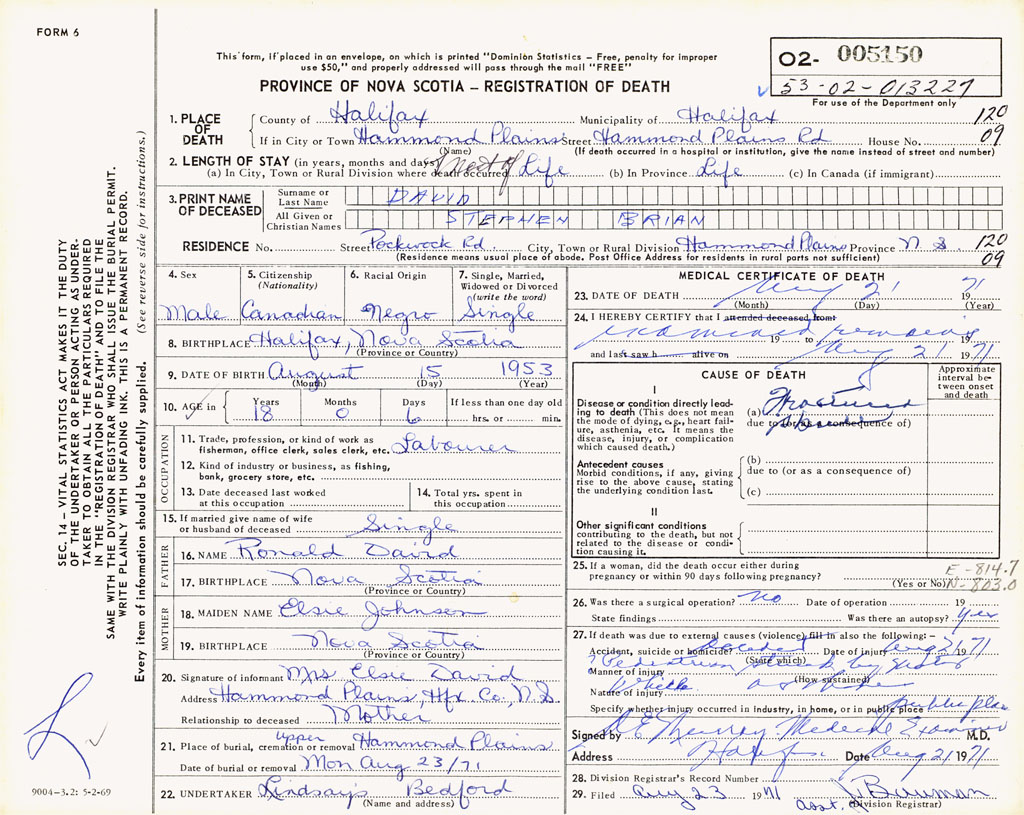 FORM 6
This form, if placed in an envelope, on which is printed "Dominion Statistics - Free, penalty for improper
use $50," and properly addressed will pass through the mail "FREE"
02- 005150
53-02-013227
For use of the Department only
PROVINCE OF NOVA SCOTIA – REGISTRATION OF DEATH
1. PLACE OF DEATH County of Halifax Municipality of Halifax 120
If in City or Town Hammond Plains Street Hammond Plains Rd House No. 09
(Name) (If death occurred in a hospital or institution, give the name instead of street and number)
2. LENGTH OF STAY (in years, months and days)
(a) In City, Town or Rural Division where death occurred most of Life (b) In Province Life (c) In Canada (if immigrant)
3. PRINT NAME OF DECEASED Surname or Last Name DAVID
All Given or Christian Names STEPHEN BRIAN
RESIDENCE No. Street Pockwock Rd City, Town or Rural Division Hammond Plains Province N.S. 120
(Residence means usual place of abode. Post Office Address for residents in rural parts not sufficient) 09
4. Sex Male
5. Citizenship (Nationality) Canadian
6. Racial Origin Negro
7. Single, Married, Widowed or Divorced (write the word) Single
8. BIRTHPLACE Halifax, Nova Scotia
(Province or Country)
9. DATE OF BIRTH August 15 1953
(Month) (Day) (Year)
10. AGE in Years 18 Months 0 Days 6 If less than one day old hrs. or min.
OCCUPATION
11. Trade, profession, or kind of work as fisherman, office clerk, sales clerk, etc. Labourer
12. Kind of industry or business, as fishing, bank, grocery store, etc.
13. Date deceased last worked at this occupation
14. Total yrs. spent in this occupation
15. If married give name of wife or husband of deceased Single
FATHER
16. NAME Ronald David
17. BIRTHPLACE Nova Scotia
(Province or Country)
MOTHER
18. MAIDEN NAME Elsie Johnson
19. BIRTHPLACE Nova Scotia
(Province or Country)
20. Signature of informant Mrs Elsie David
Address Hammond Plains, Hfx Co, N.S.
Relationship to deceased Mother
21. Place of burial, cremation or removal upper Hammond Plains
Date of burial or removal Mon Aug 23/71
22. UNDERTAKER Lindsay's Bedford
(Name and address)
MEDICAL CERTIFICATE OF DEATH
23. DATE OF DEATH Aug 21 1971
(Month) (Day) (Year)
24. I HEREBY CERTIFY that I attended deceased from
examined remains 19 to
and last saw h alive on Aug 21 1971
CAUSE OF DEATH
Approximate interval between onset and death
I
Disease or condition directly leading to death (This does not mean the mode of dying, e.g., heart failure, asthenia, etc. It means the disease, injury, or complication which caused death.)
(a) Fractured
due to (or as a consequence of)
Antecedent causes
Morbid conditions, if any, giving rise to the above cause, stating the underlying condition last.
(b)
due to (or as a consequence of)
(c)
II
Other significant conditions
contributing to the death, but not related to the disease or condition causing it.
25. If a woman, did the death occur either during pregnancy or within 90 days following pregnancy?
(Yes or No)
E-814.7
N-803.0
26. Was there a surgical operation? No Date of operation 19
State findings Was there an autopsy? Yes
27. If death was due to external causes (violence) fill in also the following: –
Accident, suicide or homicide? Accident Date of injury Aug 21 1971
(State which)
Manner of injury Pedestrian struck by motor
(How sustained)
Nature of injury
Specify whether injury occurred in industry, in home, or in public place public place
Signed by Murray Medical Examiner M.D.
Address Halifax Date Aug 21 1971
28. Division Registrar's Record Number
29. Filed Aug 23 1971 asst. Bauman
(Division Registrar)
SEC. 14 – VITAL STATISTICS ACT MAKES IT THE DUTY
OF THE UNDERTAKER OR PERSON ACTING AS UNDER-
TAKER TO OBTAIN ALL THE PARTICULARS REQUIRED
IN THE "REGISTRATION OF DEATH" AND TO FILE THE
SAME WITH THE DIVISION REGISTRAR WHO SHALL ISSUE THE BURIAL PERMIT.
WRITE PLAINLY WITH UNFADING INK. THIS IS A PERMANENT RECORD.
Every item of information should be carefully supplied. (See reverse side for instructions.)
9004-3.2: 5-2-69